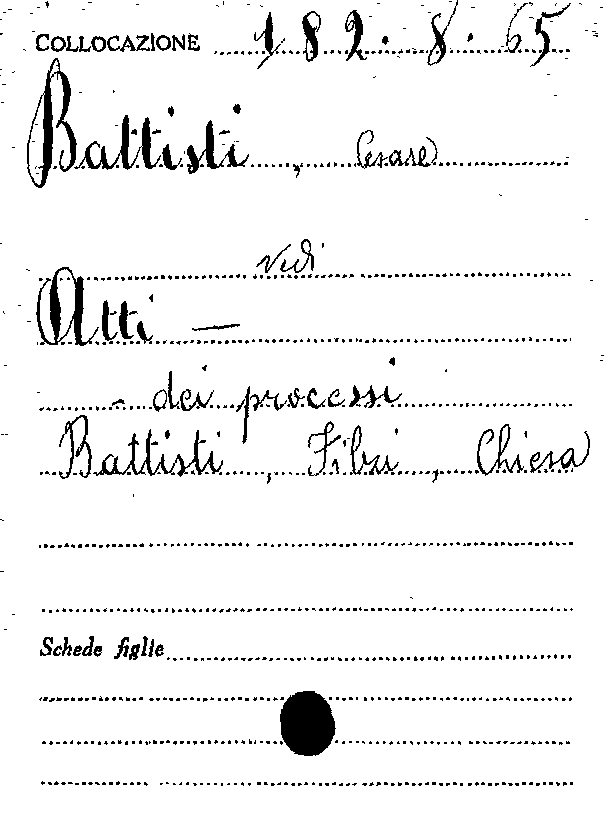 COLLOCAZIONE 182.8.65
Battisti, Cesare
Vedi
Atti —
- dei processi
Battisti, Filzi, Chiesa
Schede figlie